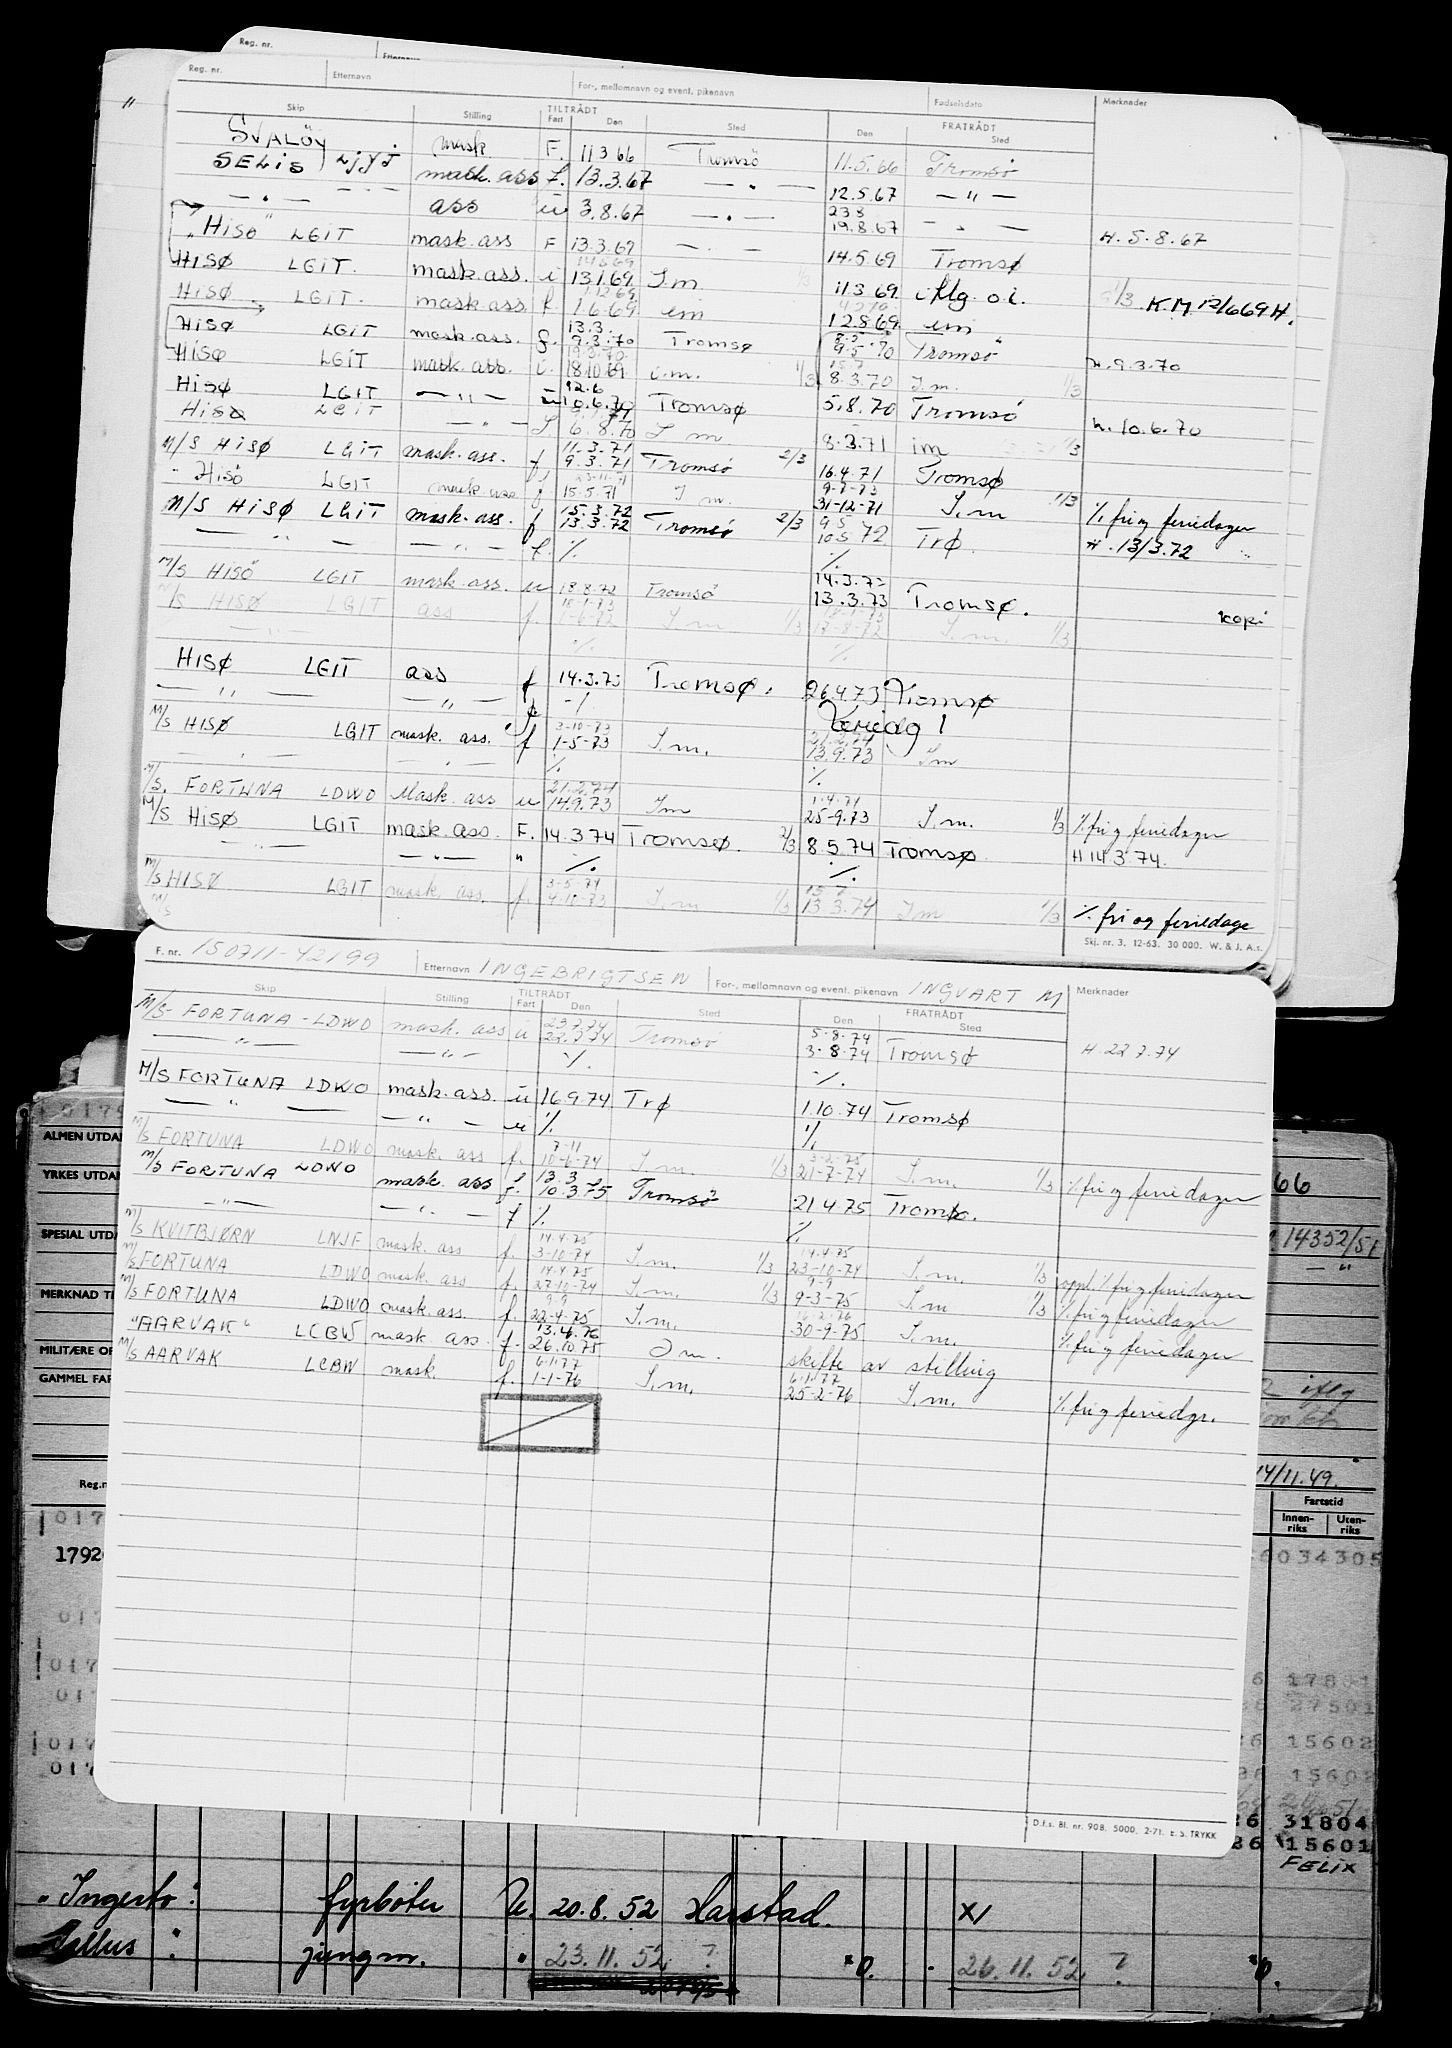 Reg. nr.
Reg. nr. Etternavn For-, mellomnavn og event. pikenavn Fødselsdato Merknader
Skip Stilling TILTRÅDT Fart Den Sted FRATRÅDT Den Sted
SVALÖY mask F. 11 3 66 Tromsö 11.5.66 Tromsö
SELIS LJYJ mask. ass f. 13.3.67 — " — 12.5.67 — " —
— " — — — — ass u 3.8.67 — " — 23 8 19.8.67 — " — H. 5.8.67
"HISÖ" LGIT mask. ass F 13.3.69 — " — 14.5.69 Tromsø
HISØ LGIT. mask. ass. i 13.1.69 I m 1/3 11.3.69 1/3 K.M 12/669 H.
HISØ LGIT. mask. ass. f 1.6.69 im 12.8.69 im
HISØ LGIT mask. ass. f. 13.3. 9.3.70 Tromsø 9.5.70 Tromsö H. 9.3.70
HISØ LGIT mask. ass. i. 18.10.69 i.m. 1/3 8.3.70 I m. 1/3
HISØ LGIT — " — u 12.6 10.6.70 Tromsø 5.8.70 Tromsö H. 10.6.70
HISØ LGIT — " — f 6.8.70 I m 8.3.71 im 1/3
M/S HISØ LGIT mask. ass. f 11.3.71 9.3.71 Tromsö 2/3 16.4.71 Tromsø
" HISÖ LGIT mask. ass f 15.5.71 I m. 31-12-71 I.m 1/3 % fri og feriedager
M/S HISØ LGIT mask. ass. f 15.3.72 13.3.72 Tromsö 2/3 9 5 10 5 72 TRØ. H. 13/3.72
— " — — " — f. % %
M/S HISÖ LGIT mask. ass. u 18.8.72 Tromsö 14.3.73 13.3.73 Tromsø.
M/S HISØ LGIT ass f. 1-6-72 I m 1/3 I.m. 1/3 kopi
— " — % %
HISØ LGIT ass f 14.3.73 Tromsø. 26.4.73 Tromsø
— " — — " — f. -/
M/S HISØ LGIT mask. ass. f 3-10-73 1-5-73 I.m. 13.9.73 I m
" — " — % %
M/S. FORTUNA LDWO Mask. ass u 21.2.74 14.9.73 I m 25-9.73 I.m. 1/3 % fri og feriedager
M/S HISØ LGIT mask. ass. F. 14.3.74 Tromsø. 2/3 8.5.74 Tromsø H 14.3.74.
— " — — " — " % %
M/S HISØ LGIT mask. ass. f. 3-5-74 4-10-73 I.m 1/3 13 3.74 I m 1/3 % fri og feriedage
M/S
Skj. nr. 3. 12-63. 30 000. W. & J. A.s.
F. nr. 150711-42199 Etternavn INGEBRIGTSEN For-, mellomnavn og event. pikenavn INGVART M Merknader
Skip Stilling TILTRÅDT Fart Den Sted FRATRÅDT Den Sted
M/S- FORTUNA - LDWO mask. ass u 23.7.74 22.7.74 Tromsö 5-8.74 3-8.74 Tromsø H. 22 7.74
— " — — " — % %
M/S FORTUNA LDWO mask. ass. u 16.9.74 TRØ 1.10.74 Tromsø
— " — — " — u % %
M/S FORTUNA LDWO mask. ass f. 7-11 10-6-74 I.m. 1/3 3-2-75 21-7-74 I.m. 1/3 % fri og feriedager
M/S FORTUNA LDWO mask. ass f. 13.3 10.3.75 Tromsö 21 4 75 Tromsø.
— " — — " — f % %
M/S KVITBJØRN LNJF mask. ass f. 14.4.75 3-10-74 I.m. 1/3 14.4.75 23-10-74 I.m. 1/3 oppl. % fri og feriedager
M/S FORTUNA LDWO mask. ass f. 14.4.75 27-10-74 I.m. 1/3 9-9 9-3-75 I.m. 1/3 % fri og feriedager
M/S FORTUNA LDWO mask. ass. f. 9.9 22-4-75 I.m. 30-9-75 I.m. % fri og feriedager
"AARVAK" LCBW mask ass. f. 13.4.76 26.10.75 I m. skifte av stilling
M/S AARVAK LCBW mask. f. 6.1.77 1-1-76 I.m. 6.1.77 25-2-76 I.m. % fri og feriedgr.
D.f.s. Bl. nr. 908. 5000. 2-71. E. S. TRYKK
ALMEN UTDA
YRKES UTDA 66
SPESIAL UTDA 14352/51
MERKNAD T
MILITÆRE OP
GAMMEL FAR
14/11.49.
Reg.n Fartstid
Innen- riks Uten- riks
017
1792 6034305
017
017 6 17801
017 27501
017 6 15602
017 15602
26 31804
26 15601
FELIX
"Ingerto" fyrbøter U. 20.8.52 Harstad. x/
jungm. " 23.11.52 ? "O. " 26.11.52 ? "O.